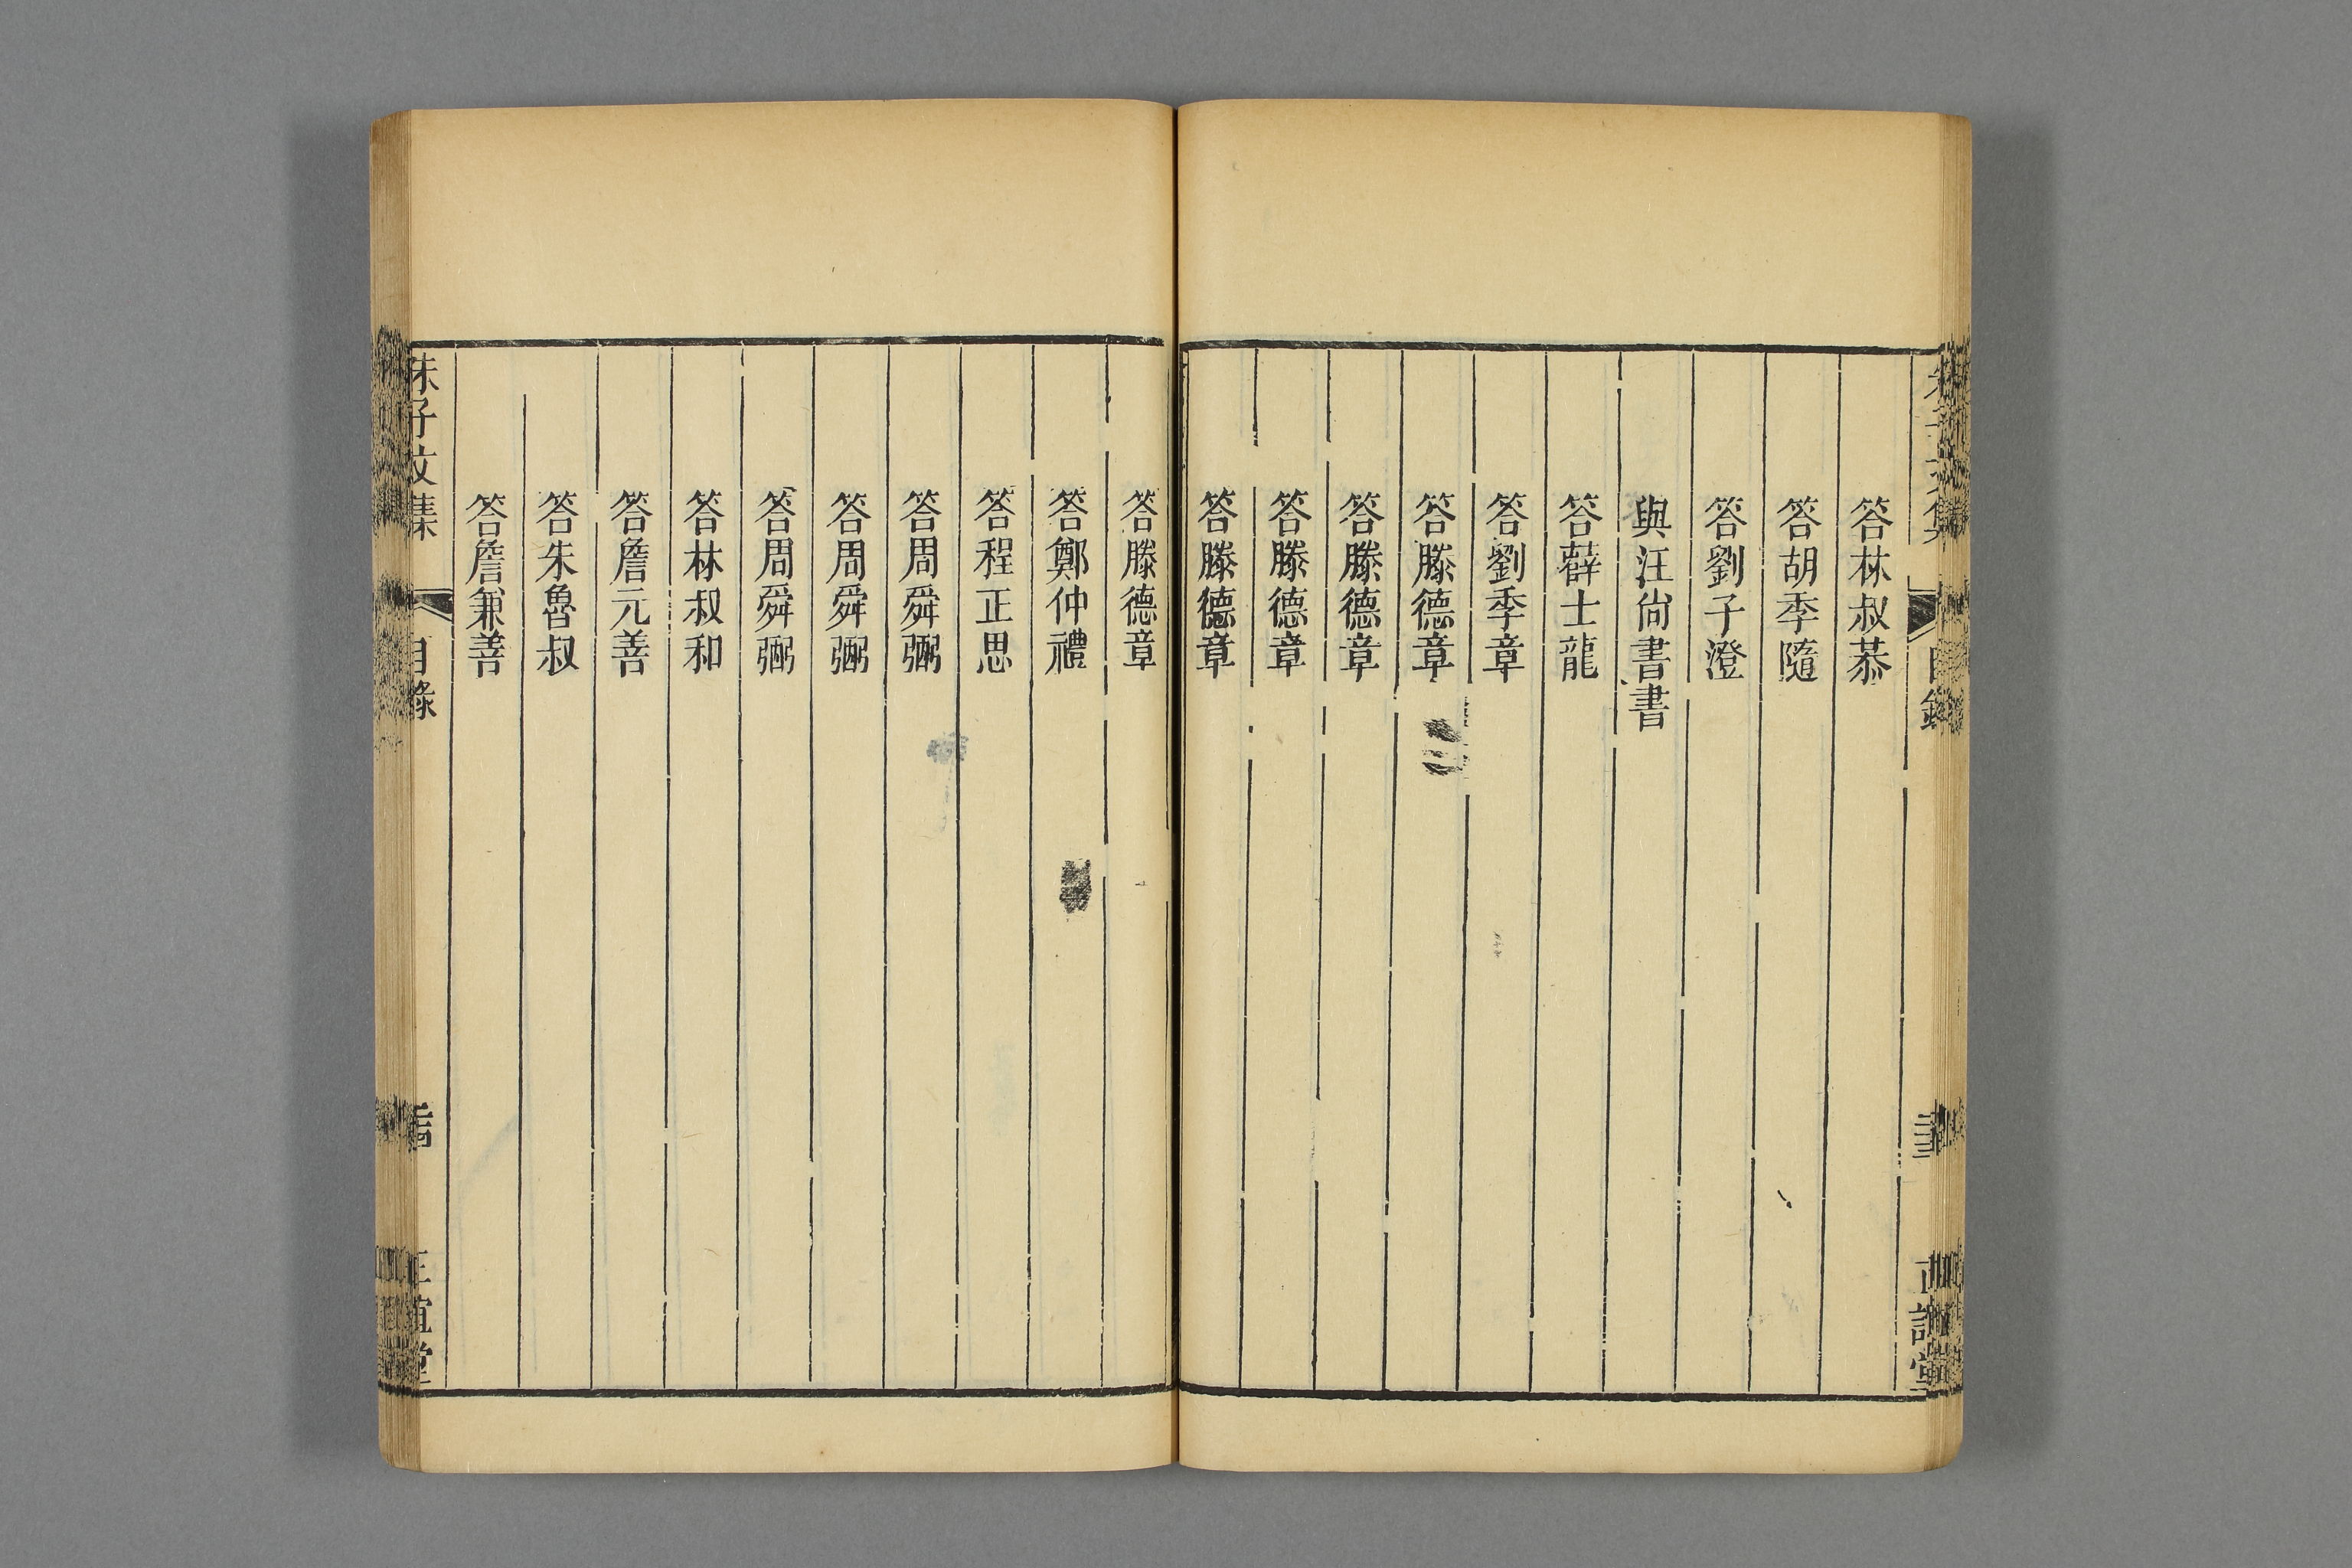 答林叔恭
答胡季隨
答劉子澄
與汪尙書書
答薛士龍
答劉季章
答滕德章
答滕德章
答滕德章
答滕德章
答滕德章
答鄭仲禮
答程正思
答周舜弼
答周舜弼
答周舜弼
答林叔和
答詹元善
答朱魯叔
答詹兼善
朱子文集
目錄
正誼堂